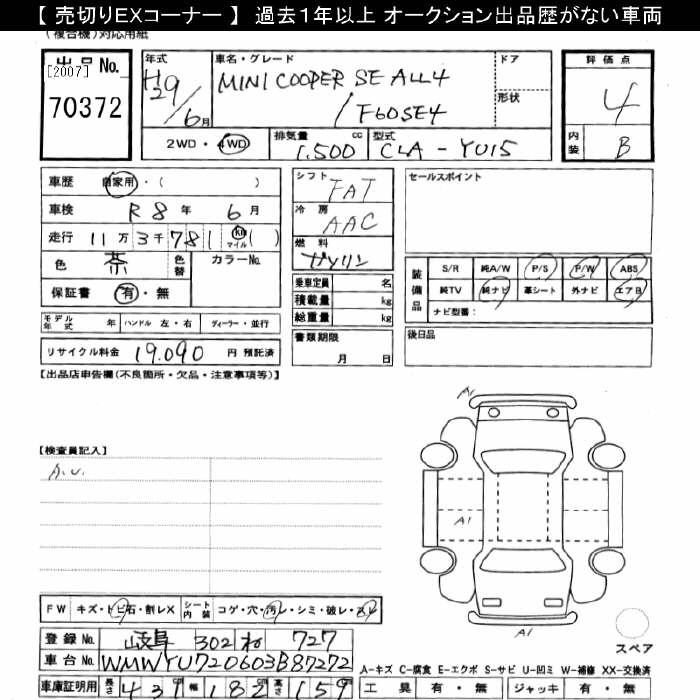 【 売切りEXコーナー 】 過去1年以上 オークション出品歴がない車両
(複合機)対応用紙
出品No.
[2007]
70372
年式
H29/6月
車名・グレード
MINI COOPER SE ALL4
/F60SE4
ドア
形状
評価点
4
内装
B
2WD・4WD
排気量
1,500 cc
型式
CLA-YU15
車歴 自家用・( )
車検 R8年 6月
走行 11万3千781 Km マイル ( )
色 茶 色替 カラーNo.
保証書 有・無
モデル年式 年 ハンドル 左・右 ディーラー・並行
リサイクル料金 19,090 円 預託済
シフト
FAT
冷房
AAC
燃料
ガソリン
乗車定員 名
積載量 kg
総重量 kg
書類期限
月 日
セールスポイント
装備品
S/R 純A/W P/S P/W ABS
純TV 純ナビ 革シート 外ナビ エアB
ナビ型番:
後日品
【出品店申告欄(不良箇所・欠品・注意事項等)】
【検査員記入】
A.U.
A1
A1
A1
スペア
FW キズ・トビ石・割レX シート内装 コゲ・穴・汚レ・シミ・破レ・スレ
登録No. 岐阜 302 ね 727
車台No. WMWYU720603B87272
車庫証明用 長さ 431 cm 幅 182 cm 高さ 159
A-キズ C-腐食 E-エクボ S-サビ U-凹ミ W-補修 XX-交換済
工具 有・無 ジャッキ 有・無